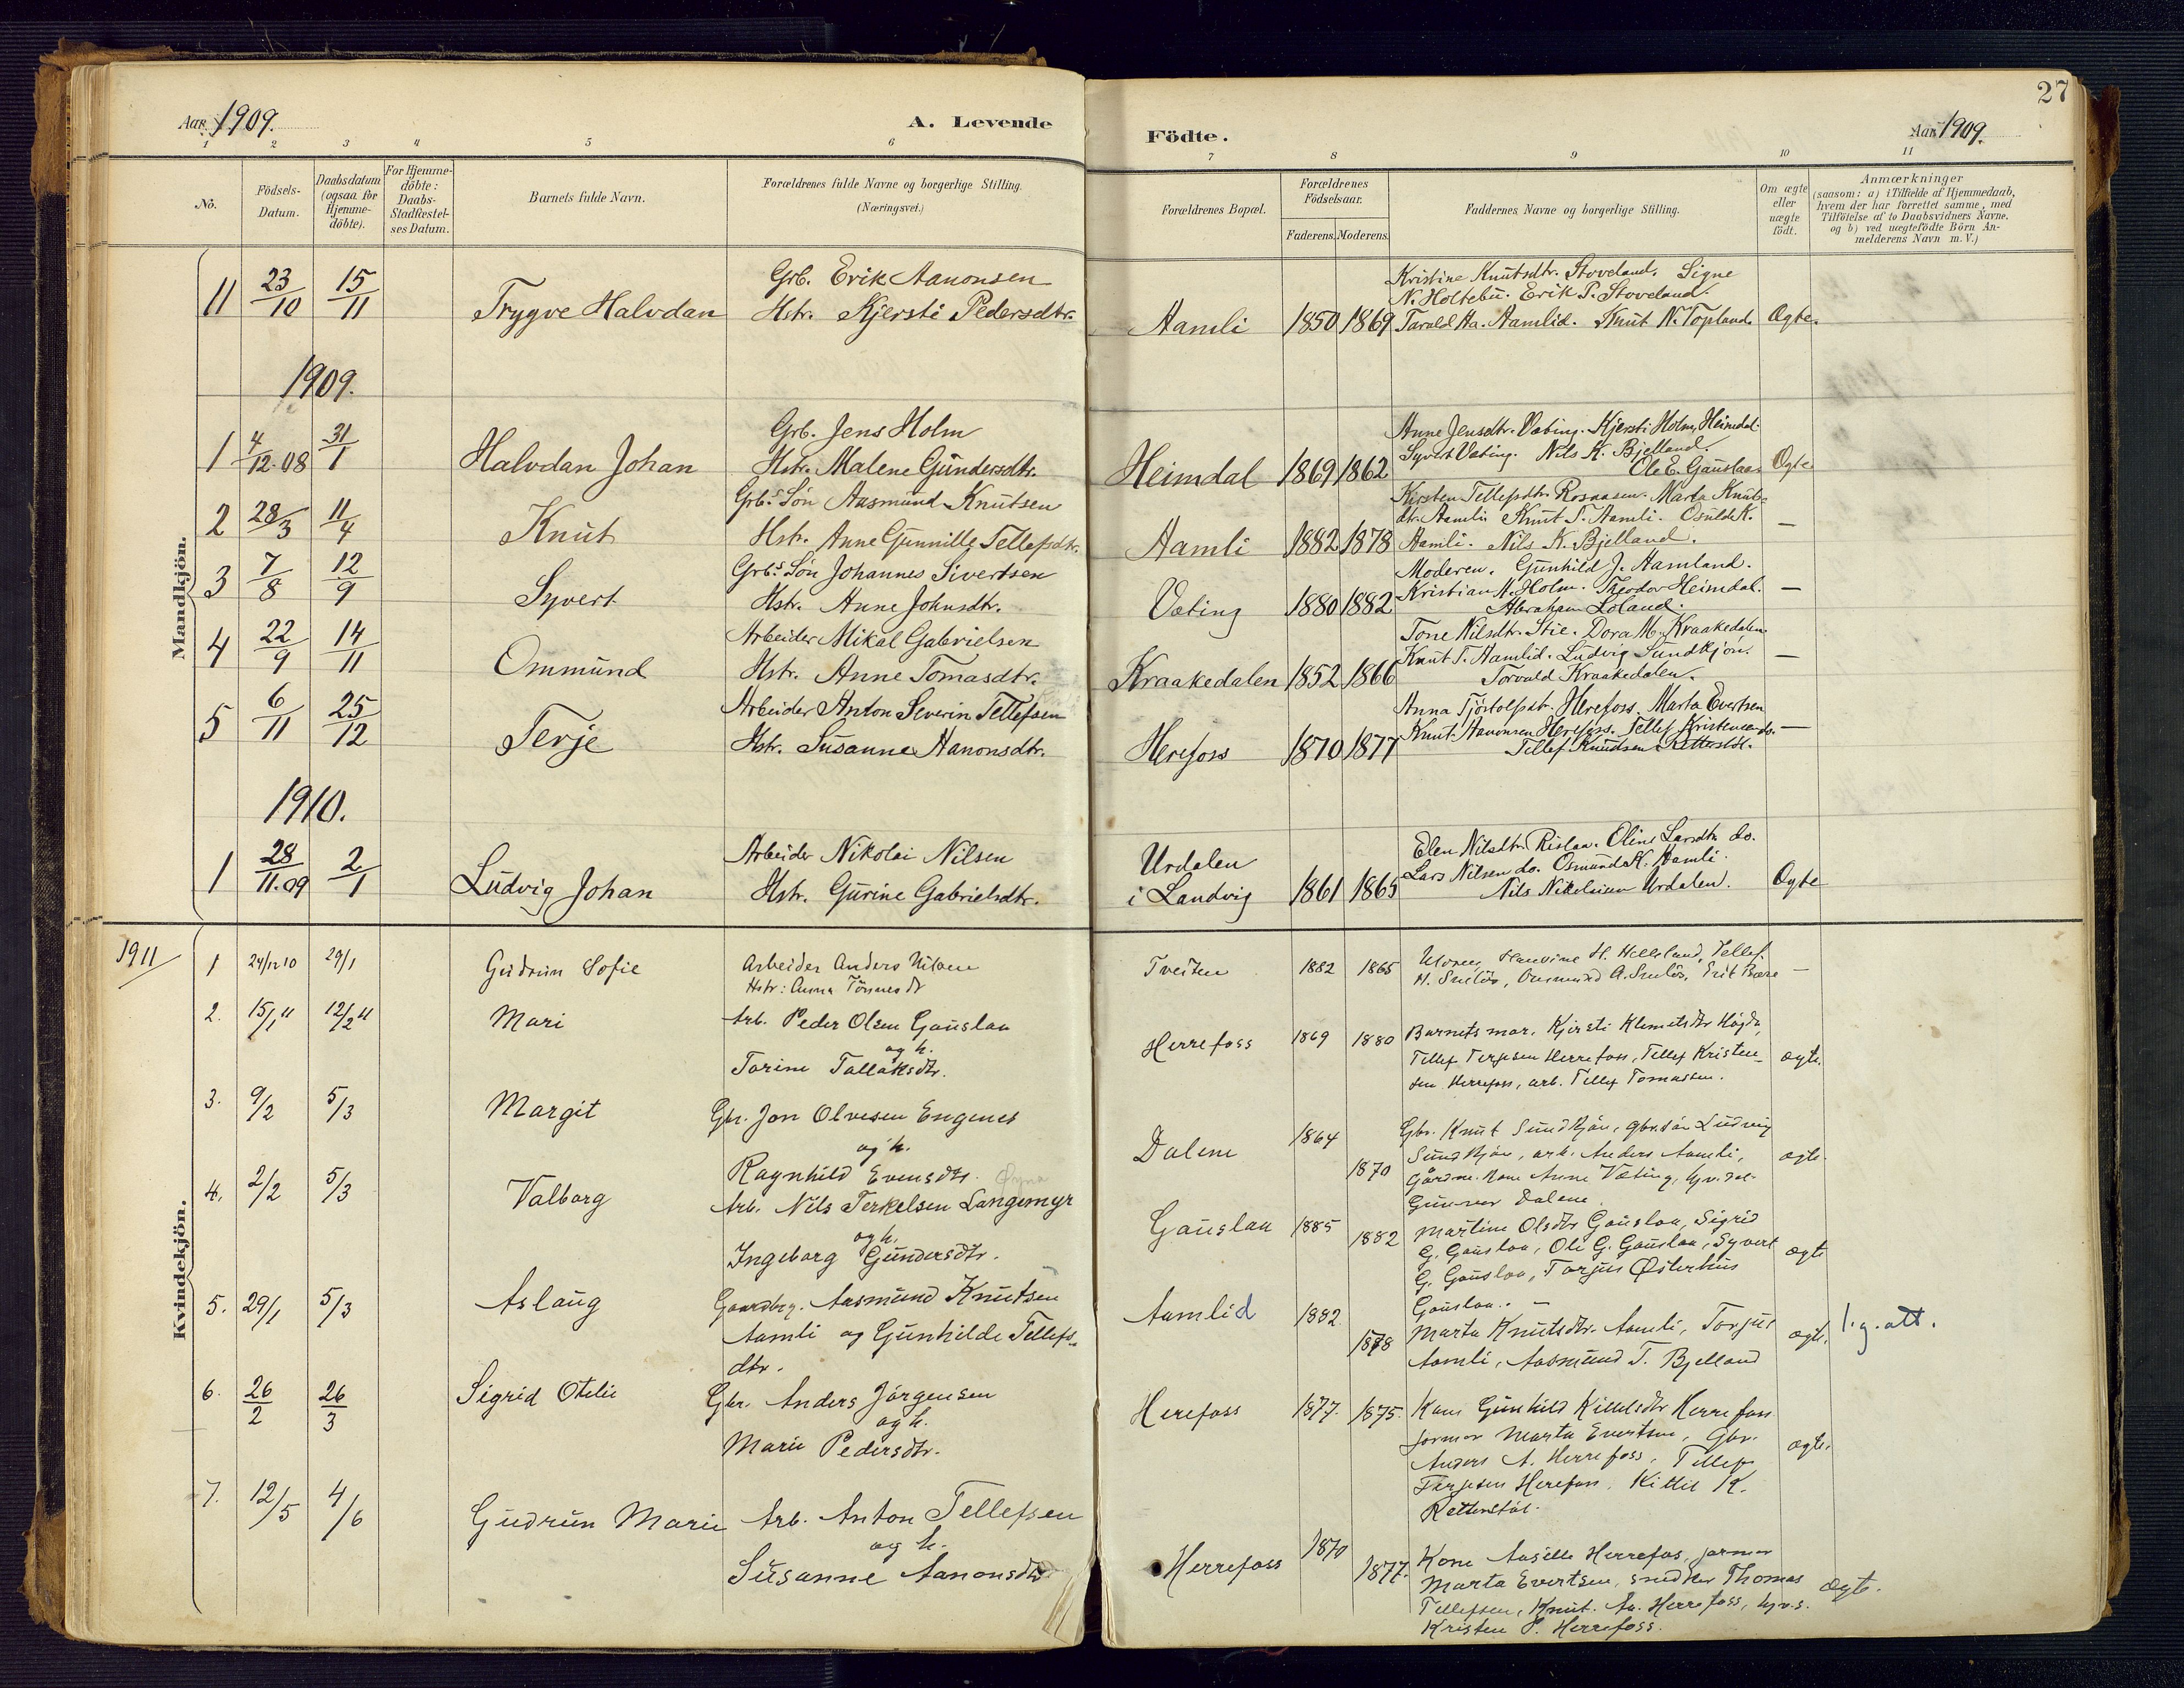 Aar 1909.
A. Levende
Födte.
Aar 1909.
27
1 2 3 4 5 6 7 8 9 10 11
No.
Födsels-
Datum.
Daabsdatum
(ogsaa for
Hjemme-
döbte).
For Hjemme-
döbte:
Daabs-
Stadfæstel-
ses Datum.
Barnets fulde Navn.
Forældrenes fulde Navne og borgerlige Stilling.
(Næringsvei.)
Forældrenes Bopæl.
Forældrenes
Födselsaar.
Faderens. Moderens.
Faddernes Navne og borgerlige Stilling.
Om ægte
eller
uægte
födt.
Anmærkninger
(saasom: a) i Tilfælde af Hjemmedaab,
hvem der har forrettet samme, med
Tilföielse af to Daabsvidners Navne.
og b) ved uægtefödte Börn An-
melderens Navn m.V.)
Mandkjön.
11 23/10 15/11 Trygve Halvdan
Grb. Erik Aanonsen
Hstr. Kjersti Pedersdtr.
Aamli 1850 1869
Kristine Knutsdtr. Stoveland. Signe
N. Holtebu. Erik P. Stoveland.
Tarald Aa. Aamlid. Knut N. Topland.
Ægte.
1909.
1 4/12.08 31/1 Halvdan Johan
Grb. Jens Holm
Hstr. Malene Gundersdtr.
Heimdal 1869 1862
Anne Jensdtr. Væting. Kjersti Holm, Heimdal.
Syvert Væting. Nils K. Bjelland.
Ole E. Gauslaa
Ægte
2 28/3 11/4 Knut
Grb.s Søn Aasmund Knutsen
Hstr. Anne Gunnille Tellefsdtr.
Aamli 1882 1878
Kirsten Tellefsdtr. Rosaasen. Marta Knuts-
dtr. Aamli Knut T. Aamli. Osuld K.
Aamli. Nils K. Bjelland.
—
3 7/8 12/9 Syvert
Grb.s Søn Johannes Sivertsen
Hstr. Anne Johnsdtr.
Væting 1880 1882
Moderen. Gunhild J. Aamland.
Kristian N. Holm. Theodor Heimdal.
Abraham Loland.
—
4 22/9 14/11 Ommund
Arbeider Mikal Gabrielsen
Hstr. Anne Tomasdtr.
Kraakedalen 1852 1866
Tone Nilsdtr. Stie. Dora M. Kraakedalen.
Knut T. Aamlid. Ludvig Sundkjøn.
Torvald Kraakedalen.
—
5 6/11 25/12 Terje
Arbeider Anton Severin Tellefsen
Hstr. Susanne Aanonsdtr.
Herefoss 1870 1877
Anna Tjostolfsdtr. Herefoss. Marta Evertsen
Knut Aanonsen Herefoss. Tellef Kristensen do.
Tellef Knudsen Retterstöl.
—
1910.
1 28/11.09 2/1 Ludvig Johan
Arbeider Nikolai Nilsen
Hstr. Gurine Gabrielsdtr.
Urdalen
i Landvig 1861 1865
Elen Nilsdtr. Rislaa. Oline Larsdtr. do.
Lars Nilsen do. Osmund K. Aamli.
Nils Nikolaisen Urdalen.
Ægte
Kvindekjön.
1911
1 24/12 10 29/1 Gudrun Sofie
Arbeider Anders Nilsen
Hstr: Anna Tönnesdtr
Tveiten 1882 1865
Moren, H. Hellsland, Tellef
H. Smlös, Osmund A. Smlös, Erik
—
2. 15/1 11 12/2 11 Mari
Arb. Peder Olsen Gauslaa
og h.
Torine Tallaksdtr.
Herrefoss 1869 1880
Barnets mor, Kjersti Klemetsdtr Högda,
Tellef Terjesen Herrefoss, Tellef Kristen-
sen Herrefoss, arb. Tellef Tomassen.
ægte.
3. 9/2 5/3 Margit
Gbr. Jon Olvesen Engenes
og h.
Ragnhild Evensdtr.
Dalene 1864 1870
Gbr. Knut Sundkjön, gbr.sön Ludvig
Sundkjön, arb. Anders Aamli,
gårdm. kone Anne Væting,
Gunnar Dalene.
ægte.
4. 2/2 5/3 Valborg
Arb. Nils Terkelsen Langemyr
og h.
Ingeborg Gundersdtr.
Gauslaa 1885 1882
Martine Olsdtr Gauslaa, Sigrid
G. Gauslaa, Ole G. Gauslaa, Syvert
G. Gauslaa, Torjus Østerhus
Gauslaa. —
ægte
5. 29/1 5/3 Aslaug
Gaardbrg. Aasmund Knutsen
Aamli og Gunhilde Tellefs-
dtr.
Aamlid 1882 1878
Marta Knutsdtr. Aamli, Torjus
Aamli, Aasmund T. Bjelland
ægte.
l.g. att.
6. 26/2 26/3 Sigrid Otelie
Gbr. Anders Jörgensen
og h.
Marie Pedersdtr.
Herefoss 1877. 1875.
Kone Gunhild Kittelsdtr Herrefoss
jormor Marta Evertsen, Gbr.
Anders A. Herrefoss, Tellef
Terjesen Herefoss, Kittil K.
Retterstöl.
ægte.
7. 12/5 4/6 Gudrun Marie
Arb. Anton Tellefsen
og h.
Susanne Aanonsdtr
Herrefoss 1870 1877.
Kone Aasille Herrefos, jormor
Marta Evertsen, snedker Thomas
Tellefsen, Knut Aa. Herrefoss, hjv.s.
Kristen P. Herrefoss.
ægte.